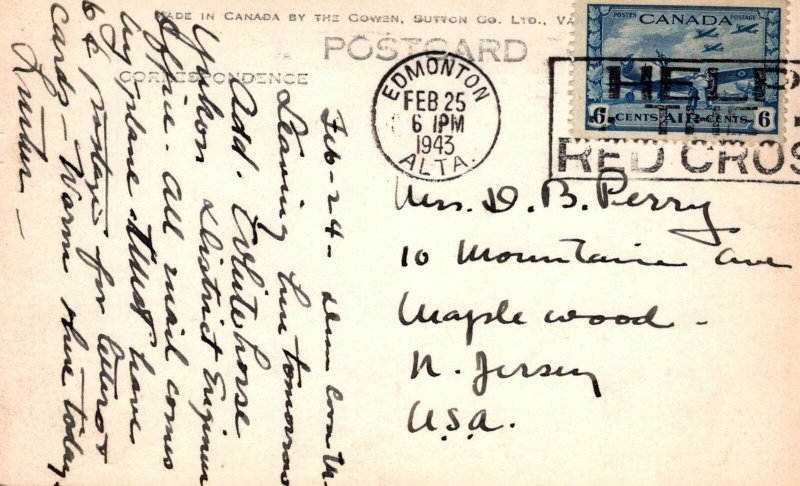 MADE IN CANADA BY THE GOWEN, SUTTON CO. LTD., VA
POSTCARD
CORRESPONDENCE
EDMONTON
FEB 25
6 1PM
1943
ALTA.
HELP
THE
RED CROS
POSTES POSTAGE
CANADA
6 CENTS AIR CENTS 6
Feb-24-
Leaving here tomorrow
Add. Whitehorse
Yukon District Engineer
Office. All mail comes
by plane & must have
6¢ postage for letters &
cards - Warm here today
Luther -
Mrs. D. B. Perry
10 Mountain Ave
Maplewood -
N. Jersey
U.S.A.